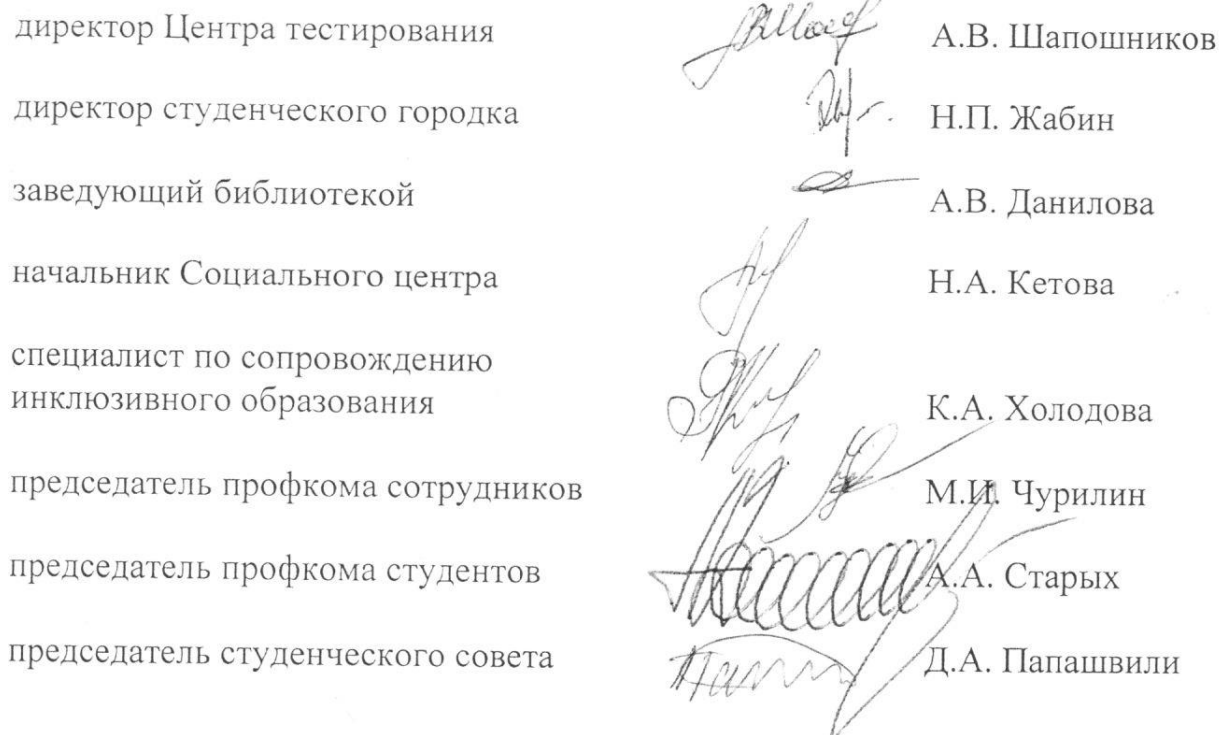 директор Центра тестирования А.В. Шапошников
директор студенческого городка Н.П. Жабин
заведующий библиотекой А.В. Данилова
начальник Социального центра Н.А. Кетова
специалист по сопровождению
инклюзивного образования К.А. Холодова
председатель профкома сотрудников М.И. Чурилин
председатель профкома студентов А.А. Старых
председатель студенческого совета Д.А. Папашвили